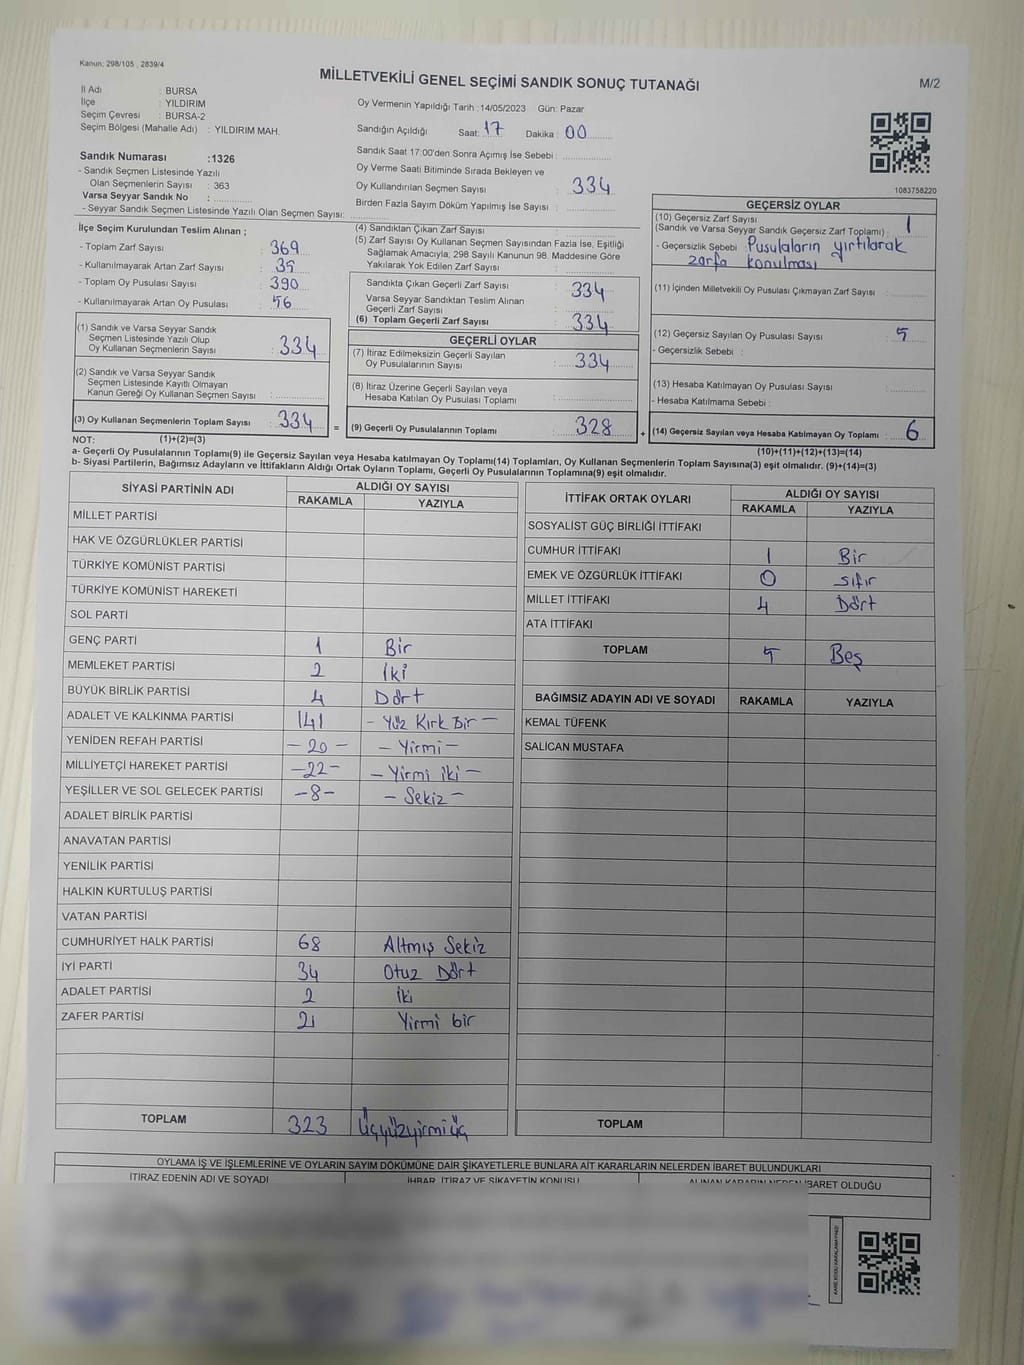 Kanun: 298/105 , 2839/4
MİLLETVEKİLİ GENEL SEÇİMİ SANDIK SONUÇ TUTANAĞI
M/2
İl Adı : BURSA
İlçe : YILDIRIM
Seçim Çevresi : BURSA-2
Seçim Bölgesi (Mahalle Adı) : YILDIRIM MAH.
Sandık Numarası :1326
- Sandık Seçmen Listesinde Yazılı
Olan Seçmenlerin Sayısı : 363
Varsa Seyyar Sandık No :
- Seyyar Sandık Seçmen Listesinde Yazılı Olan Seçmen Sayısı:
Oy Vermenin Yapıldığı Tarih :14/05/2023 Gün: Pazar
Sandığın Açıldığı Saat: 17 Dakika : 00
Sandık Saat 17:00'den Sonra Açımış İse Sebebi :
Oy Verme Saati Bitiminde Sırada Bekleyen ve
Oy Kullandırılan Seçmen Sayısı : 334
Birden Fazla Sayım Döküm Yapılmış İse Sayısı :
1083758220
İlçe Seçim Kurulundan Teslim Alınan ;
- Toplam Zarf Sayısı : 369
- Kullanılmayarak Artan Zarf Sayısı : 35
- Toplam Oy Pusulası Sayısı : 390
- Kullanılmayarak Artan Oy Pusulası : 56
(1) Sandık ve Varsa Seyyar Sandık
Seçmen Listesinde Yazılı Olup
Oy Kullanan Seçmenlerin Sayısı : 334
(2) Sandık ve Varsa Seyyar Sandık
Seçmen Listesinde Kayıtlı Olmayan
Kanun Gereği Oy Kullanan Seçmen Sayısı :
(3) Oy Kullanan Seçmenlerin Toplam Sayısı : 334 =
(4) Sandıktan Çıkan Zarf Sayısı :
(5) Zarf Sayısı Oy Kullanan Seçmen Sayısından Fazla İse, Eşitliği
Sağlamak Amacıyla; 298 Sayılı Kanunun 98. Maddesine Göre
Yakılarak Yok Edilen Zarf Sayısı :
Sandıkta Çıkan Geçerli Zarf Sayısı : 334
Varsa Seyyar Sandıktan Teslim Alınan
Geçerli Zarf Sayısı :
(6) Toplam Geçerli Zarf Sayısı : 334
GEÇERLİ OYLAR
(7) İtiraz Edilmeksizin Geçerli Sayılan
Oy Pusulalarının Sayısı : 334
(8) İtiraz Üzerine Geçerli Sayılan veya
Hesaba Katılan Oy Pusulası Toplamı :
(9) Geçerli Oy Pusulalarının Toplamı : 328 +
GEÇERSİZ OYLAR
(10) Geçersiz Zarf Sayısı
(Sandık ve Varsa Seyyar Sandık Geçersiz Zarf Toplamı) : 1
- Geçersizlik Sebebi : Pusulaların yırtılarak
zarfa konulması
(11) İçinden Milletvekili Oy Pusulası Çıkmayan Zarf Sayısı :
(12) Geçersiz Sayılan Oy Pusulası Sayısı : 5
- Geçersizlik Sebebi :
(13) Hesaba Katılmayan Oy Pusulası Sayısı :
- Hesaba Katılmama Sebebi :
(14) Geçersiz Sayılan veya Hesaba Katılmayan Oy Toplamı : 6
NOT: (1)+(2)=(3) (10)+(11)+(12)+(13)=(14)
a- Geçerli Oy Pusulalarının Toplamı(9) ile Geçersiz Sayılan veya Hesaba katılmayan Oy Toplamı(14) Toplamları, Oy Kullanan Seçmenlerin Toplam Sayısına(3) eşit olmalıdır. (9)+(14)=(3)
b- Siyasi Partilerin, Bağımsız Adayların ve İttifakların Aldığı Ortak Oyların Toplamı, Geçerli Oy Pusulalarının Toplamına(9) eşit olmalıdır.
SİYASİ PARTİNİN ADI ALDIĞI OY SAYISI
RAKAMLA YAZIYLA
MİLLET PARTİSİ
HAK VE ÖZGÜRLÜKLER PARTİSİ
TÜRKİYE KOMÜNİST PARTİSİ
TÜRKİYE KOMÜNİST HAREKETİ
SOL PARTİ
GENÇ PARTİ 1 Bir
MEMLEKET PARTİSİ 2 İki
BÜYÜK BİRLİK PARTİSİ 4 Dört
ADALET VE KALKINMA PARTİSİ 141 - Yüz Kırk Bir -
YENİDEN REFAH PARTİSİ - 20 - - Yirmi -
MİLLİYETÇİ HAREKET PARTİSİ -22- - Yirmi iki -
YEŞİLLER VE SOL GELECEK PARTİSİ -8- - Sekiz -
ADALET BİRLİK PARTİSİ
ANAVATAN PARTİSİ
YENİLİK PARTİSİ
HALKIN KURTULUŞ PARTİSİ
VATAN PARTİSİ
CUMHURİYET HALK PARTİSİ 68 Altmış Sekiz
İYİ PARTİ 34 Otuz Dört
ADALET PARTİSİ 2 İki
ZAFER PARTİSİ 21 Yirmi bir
TOPLAM 323 Üçyüzyirmiüç
İTTİFAK ORTAK OYLARI ALDIĞI OY SAYISI
RAKAMLA YAZIYLA
SOSYALİST GÜÇ BİRLİĞİ İTTİFAKI
CUMHUR İTTİFAKI 1 Bir
EMEK VE ÖZGÜRLÜK İTTİFAKI 0 sıfır
MİLLET İTTİFAKI 4 Dört
ATA İTTİFAKI
TOPLAM 5 Beş
BAĞIMSIZ ADAYIN ADI VE SOYADI RAKAMLA YAZIYLA
KEMAL TÜFENK
SALİCAN MUSTAFA
TOPLAM
OYLAMA İŞ VE İŞLEMLERİNE VE OYLARIN SAYIM DÖKÜMÜNE DAİR ŞİKAYETLERLE BUNLARA AİT KARARLARIN NELERDEN İBARET BULUNDUKLARI
İTİRAZ EDENİN ADI VE SOYADI İHBAR, İTİRAZ VE ŞİKAYETİN KONUSU ALINAN KARARIN NEDEN İBARET OLDUĞU